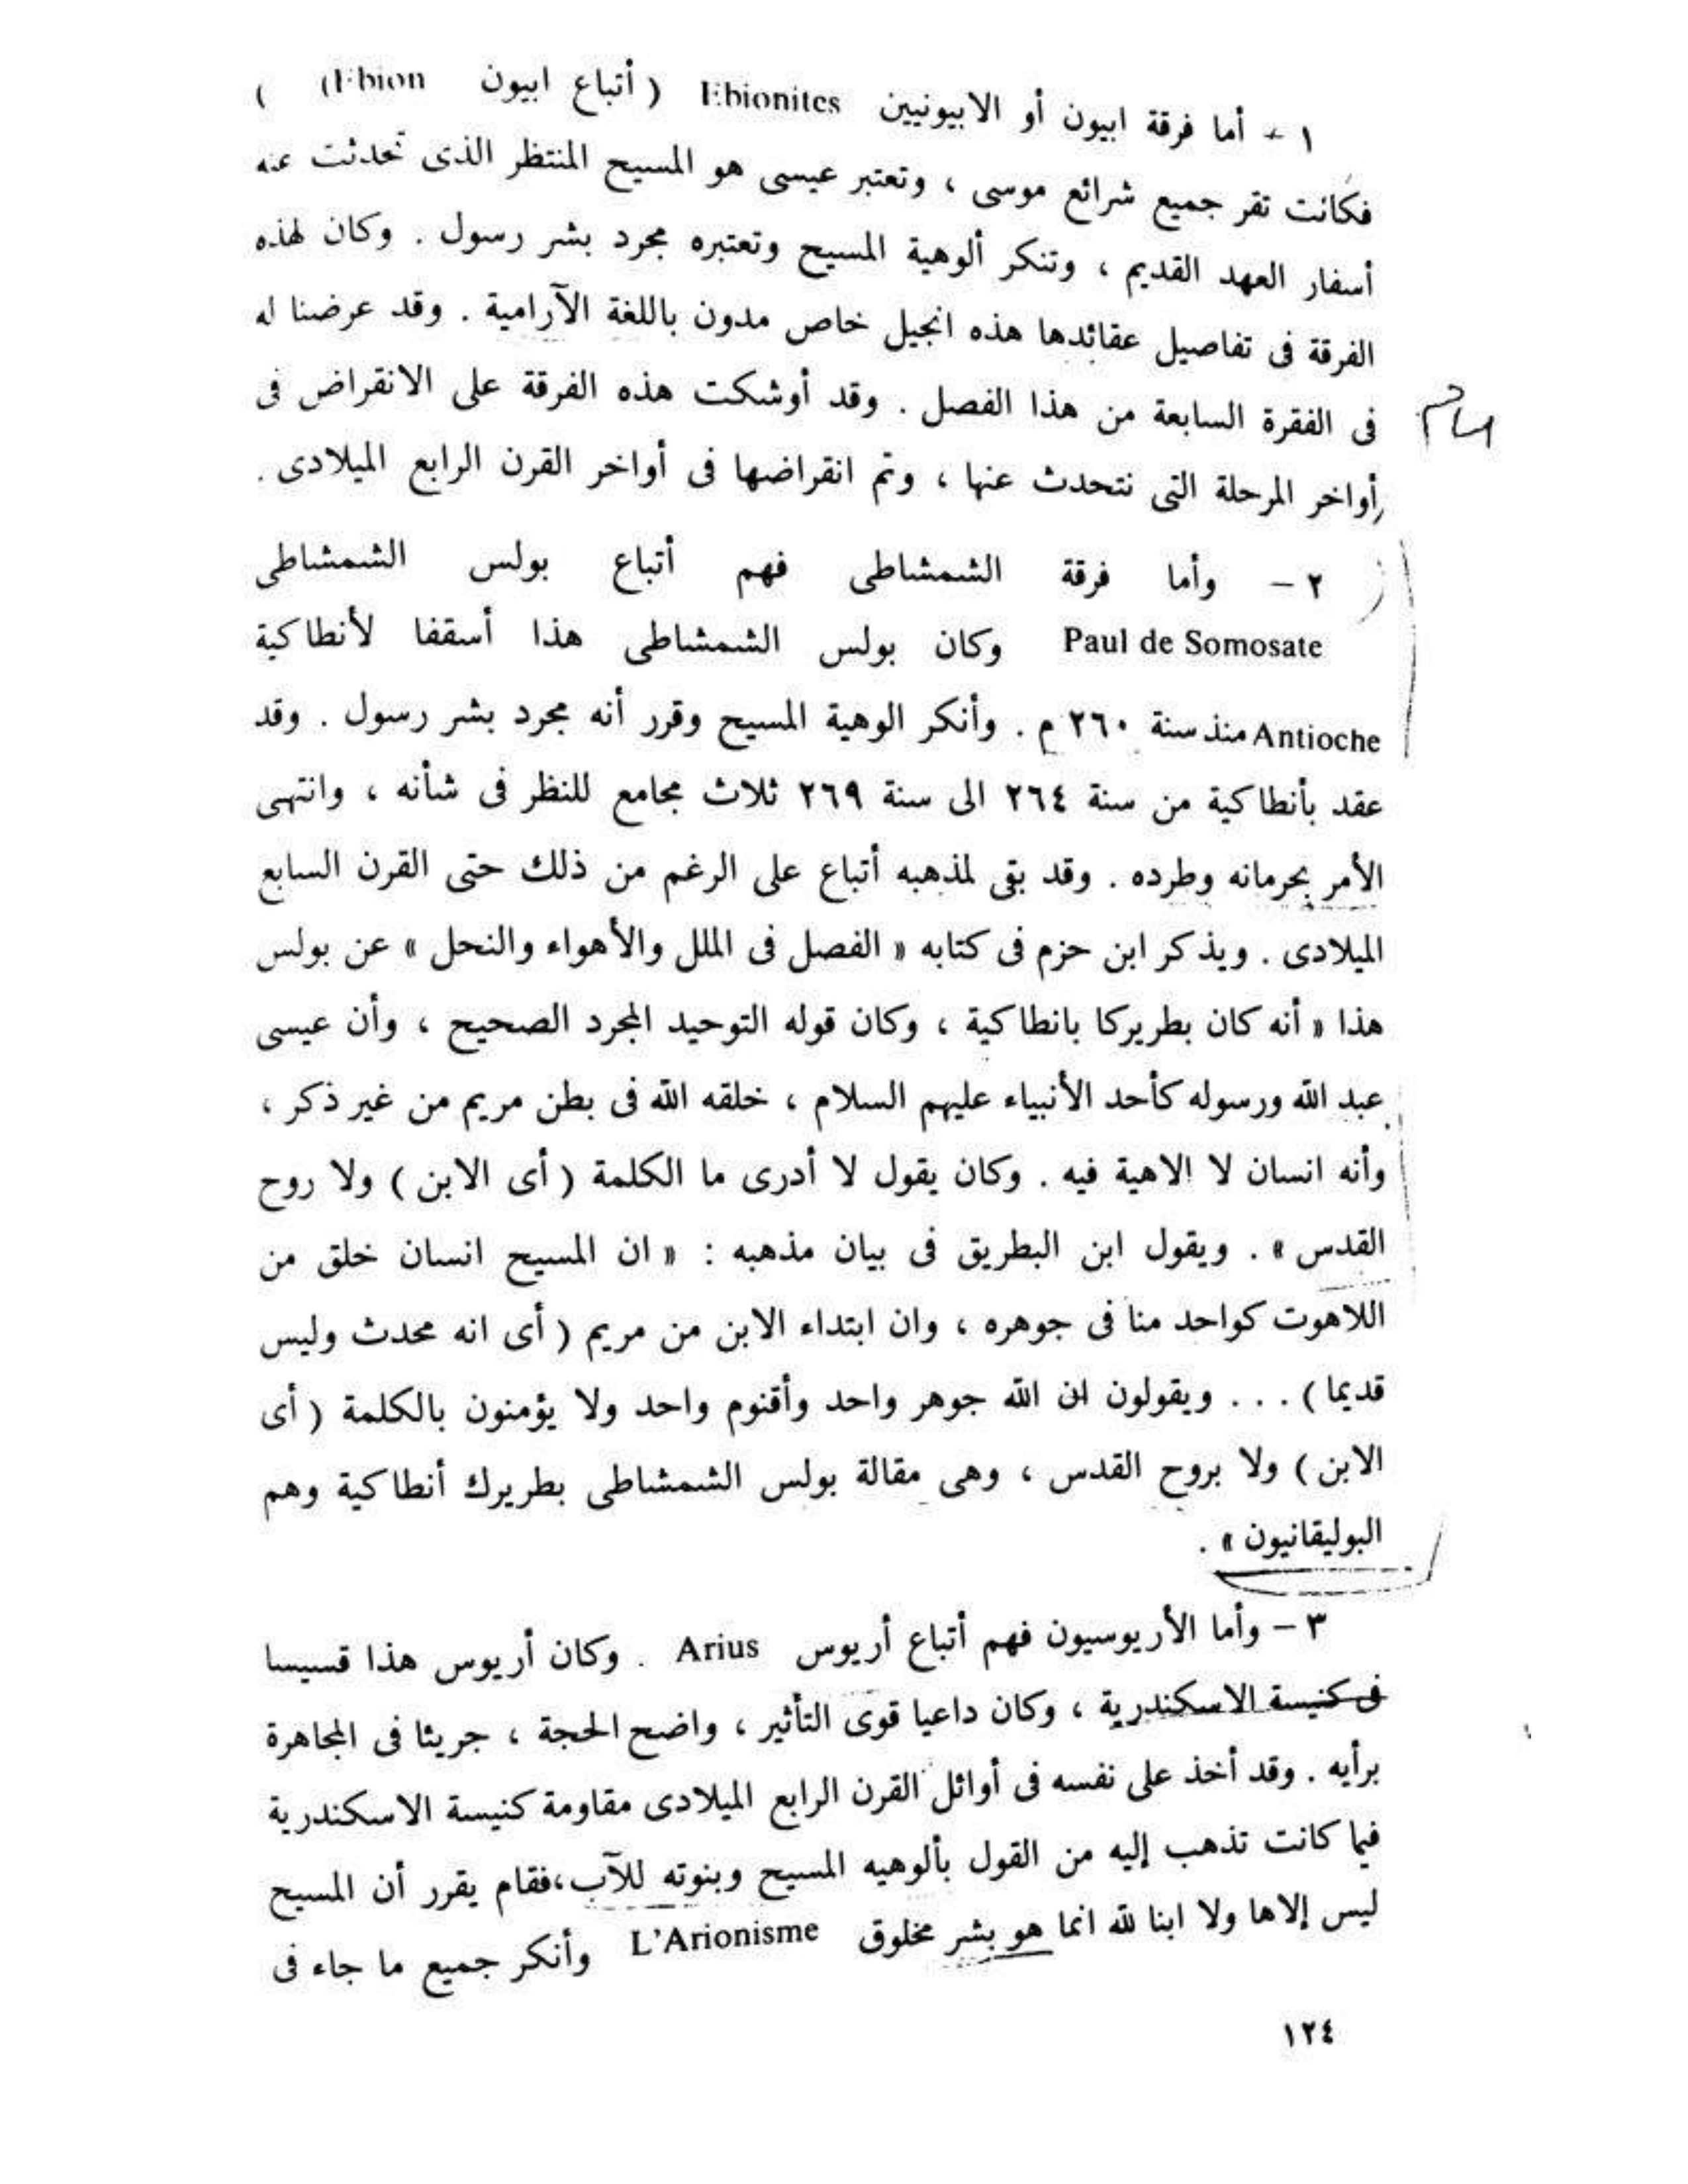 ١ - أما فرقة ابيون أو الابيونيين Ebionites ( أتباع ابيون Ebion) )
فكانت تقر جميع شرائع موسى ، وتعتبر عيسى هو المسيح المنتظر الذى تحدثت عنه
أسفار العهد القديم ، وتنكر ألوهية المسيح وتعتبره مجرد بشر رسول . وكان لهذه
الفرقة فى تفاصيل عقائدها هذه انجيل خاص مدون باللغة الآرامية . وقد عرضنا له
فى الفقرة السابعة من هذا الفصل . وقد أوشكت هذه الفرقة على الانقراض فى
أواخر المرحلة التى نتحدث عنها ، وتم انقراضها فى أواخر القرن الرابع الميلادى .
٢ - وأما فرقة الشمشاطى فهم أتباع بولس الشمشاطى
Paul de Somosate وكان بولس الشمشاطى هذا أسقفا لأنطاكية
Antioche منذ سنة ٢٦٠ م . وأنكر الوهية المسيح وقرر أنه مجرد بشر رسول . وقد
عقد بأنطاكية من سنة ٢٦٤ الى سنة ٢٦٩ ثلاث مجامع للنظر فى شأنه ، وانتهى
الأمر بحرمانه وطرده . وقد بقى لمذهبه أتباع على الرغم من ذلك حتى القرن السابع
الميلادى . ويذكر ابن حزم فى كتابه « الفصل فى الملل والأهواء والنحل » عن بولس
هذا « أنه كان بطريركا بانطاكية ، وكان قوله التوحيد المجرد الصحيح ، وأن عيسى
عبد الله ورسوله كأحد الأنبياء عليهم السلام ، خلقه الله فى بطن مريم من غير ذكر ،
وأنه انسان لا الاهية فيه . وكان يقول لا أدرى ما الكلمة ( أى الابن ) ولا روح
القدس » . ويقول ابن البطريق فى بيان مذهبه : « ان المسيح انسان خلق من
اللاهوت كواحد منا فى جوهره ، وان ابتداء الابن من مريم ( أى انه محدث وليس
قديما ) . . . ويقولون ان الله جوهر واحد وأقنوم واحد ولا يؤمنون بالكلمة ( أى
الابن ) ولا بروح القدس ، وهى مقالة بولس الشمشاطى بطريرك أنطاكية وهم
البوليقانيون » .
٣ - وأما الأريوسيون فهم أتباع أريوس Arius . وكان أريوس هذا قسيسا
فى كنيسة الاسكندرية ، وكان داعيا قوى التأثير ، واضح الحجة ، جريئا فى المجاهرة
برأيه . وقد أخذ على نفسه فى أوائل القرن الرابع الميلادى مقاومة كنيسة الاسكندرية
فيما كانت تذهب إليه من القول بألوهيه المسيح وبنوته للآب،فقام يقرر أن المسيح
ليس إلاها ولا ابنا لله انما هو بشر مخلوق L'Arionisme وأنكر جميع ما جاء فى
١٢٤